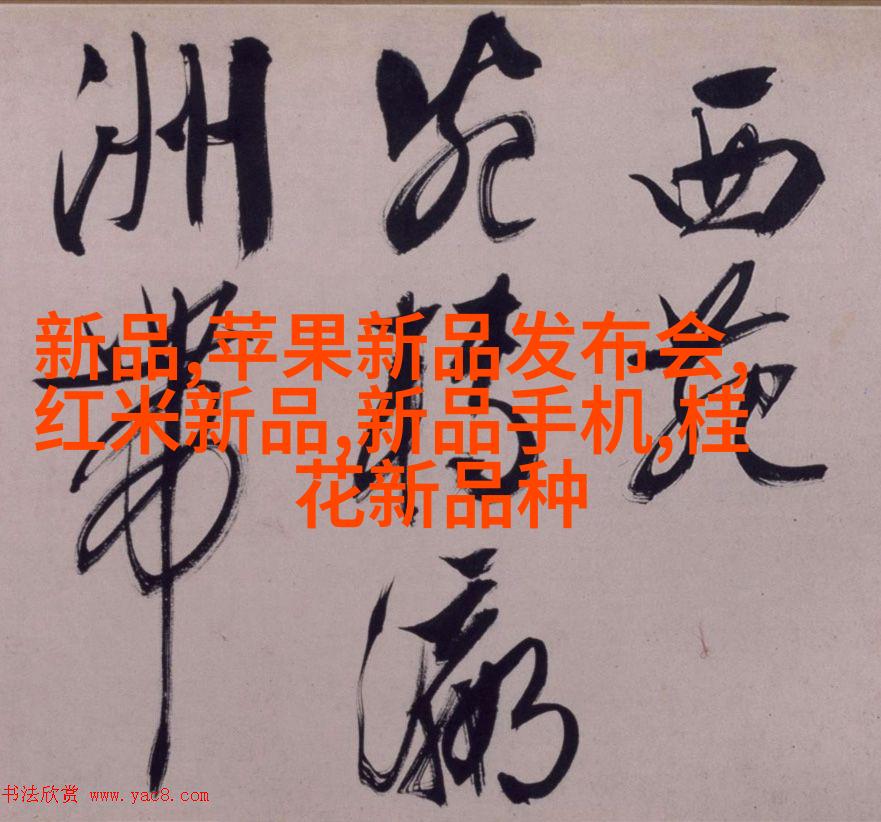 西苑
瀛
洲帶
新品,苹果新品发布会,
红米新品,新品手机,桂
花新品种
书法欣赏 www.yac8.com